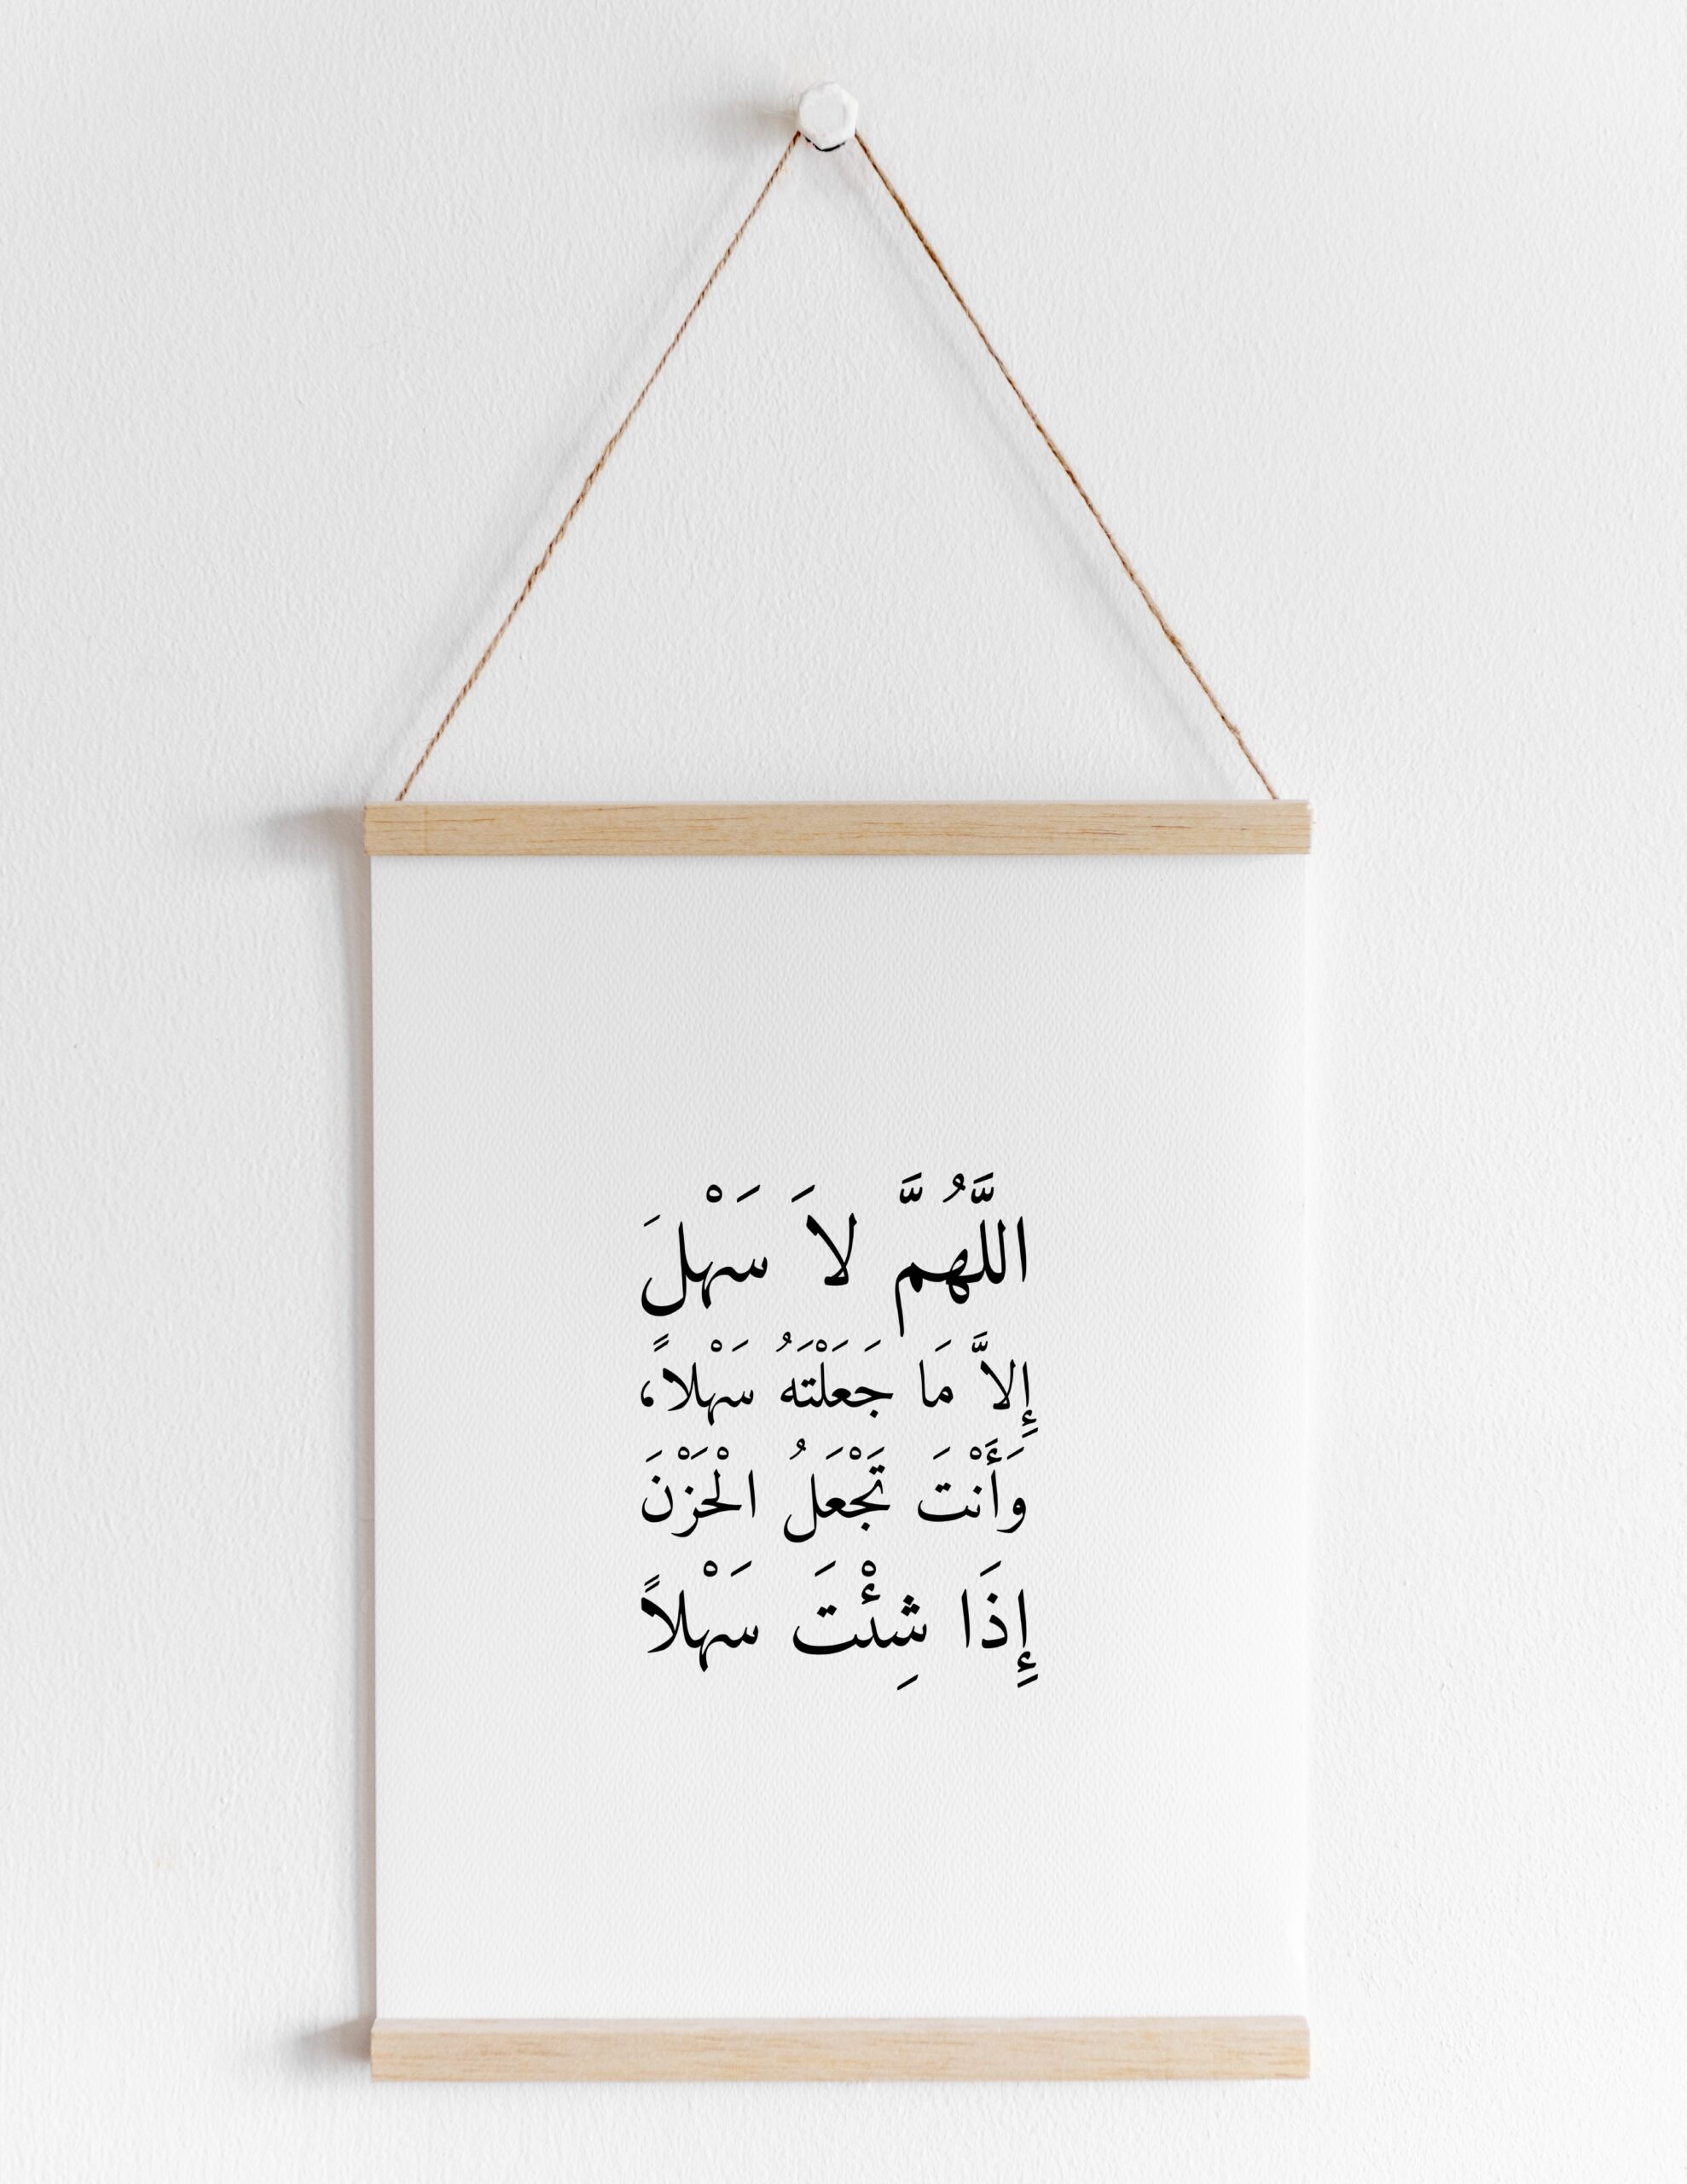 اللَّهُمَّ لاَ سَهْلَ
إِلاَّ مَا جَعَلْتَهُ سَهْلاً،
وَأَنْتَ تَجْعَلُ الْحَزْنَ
إِذَا شِئْتَ سَهْلاً